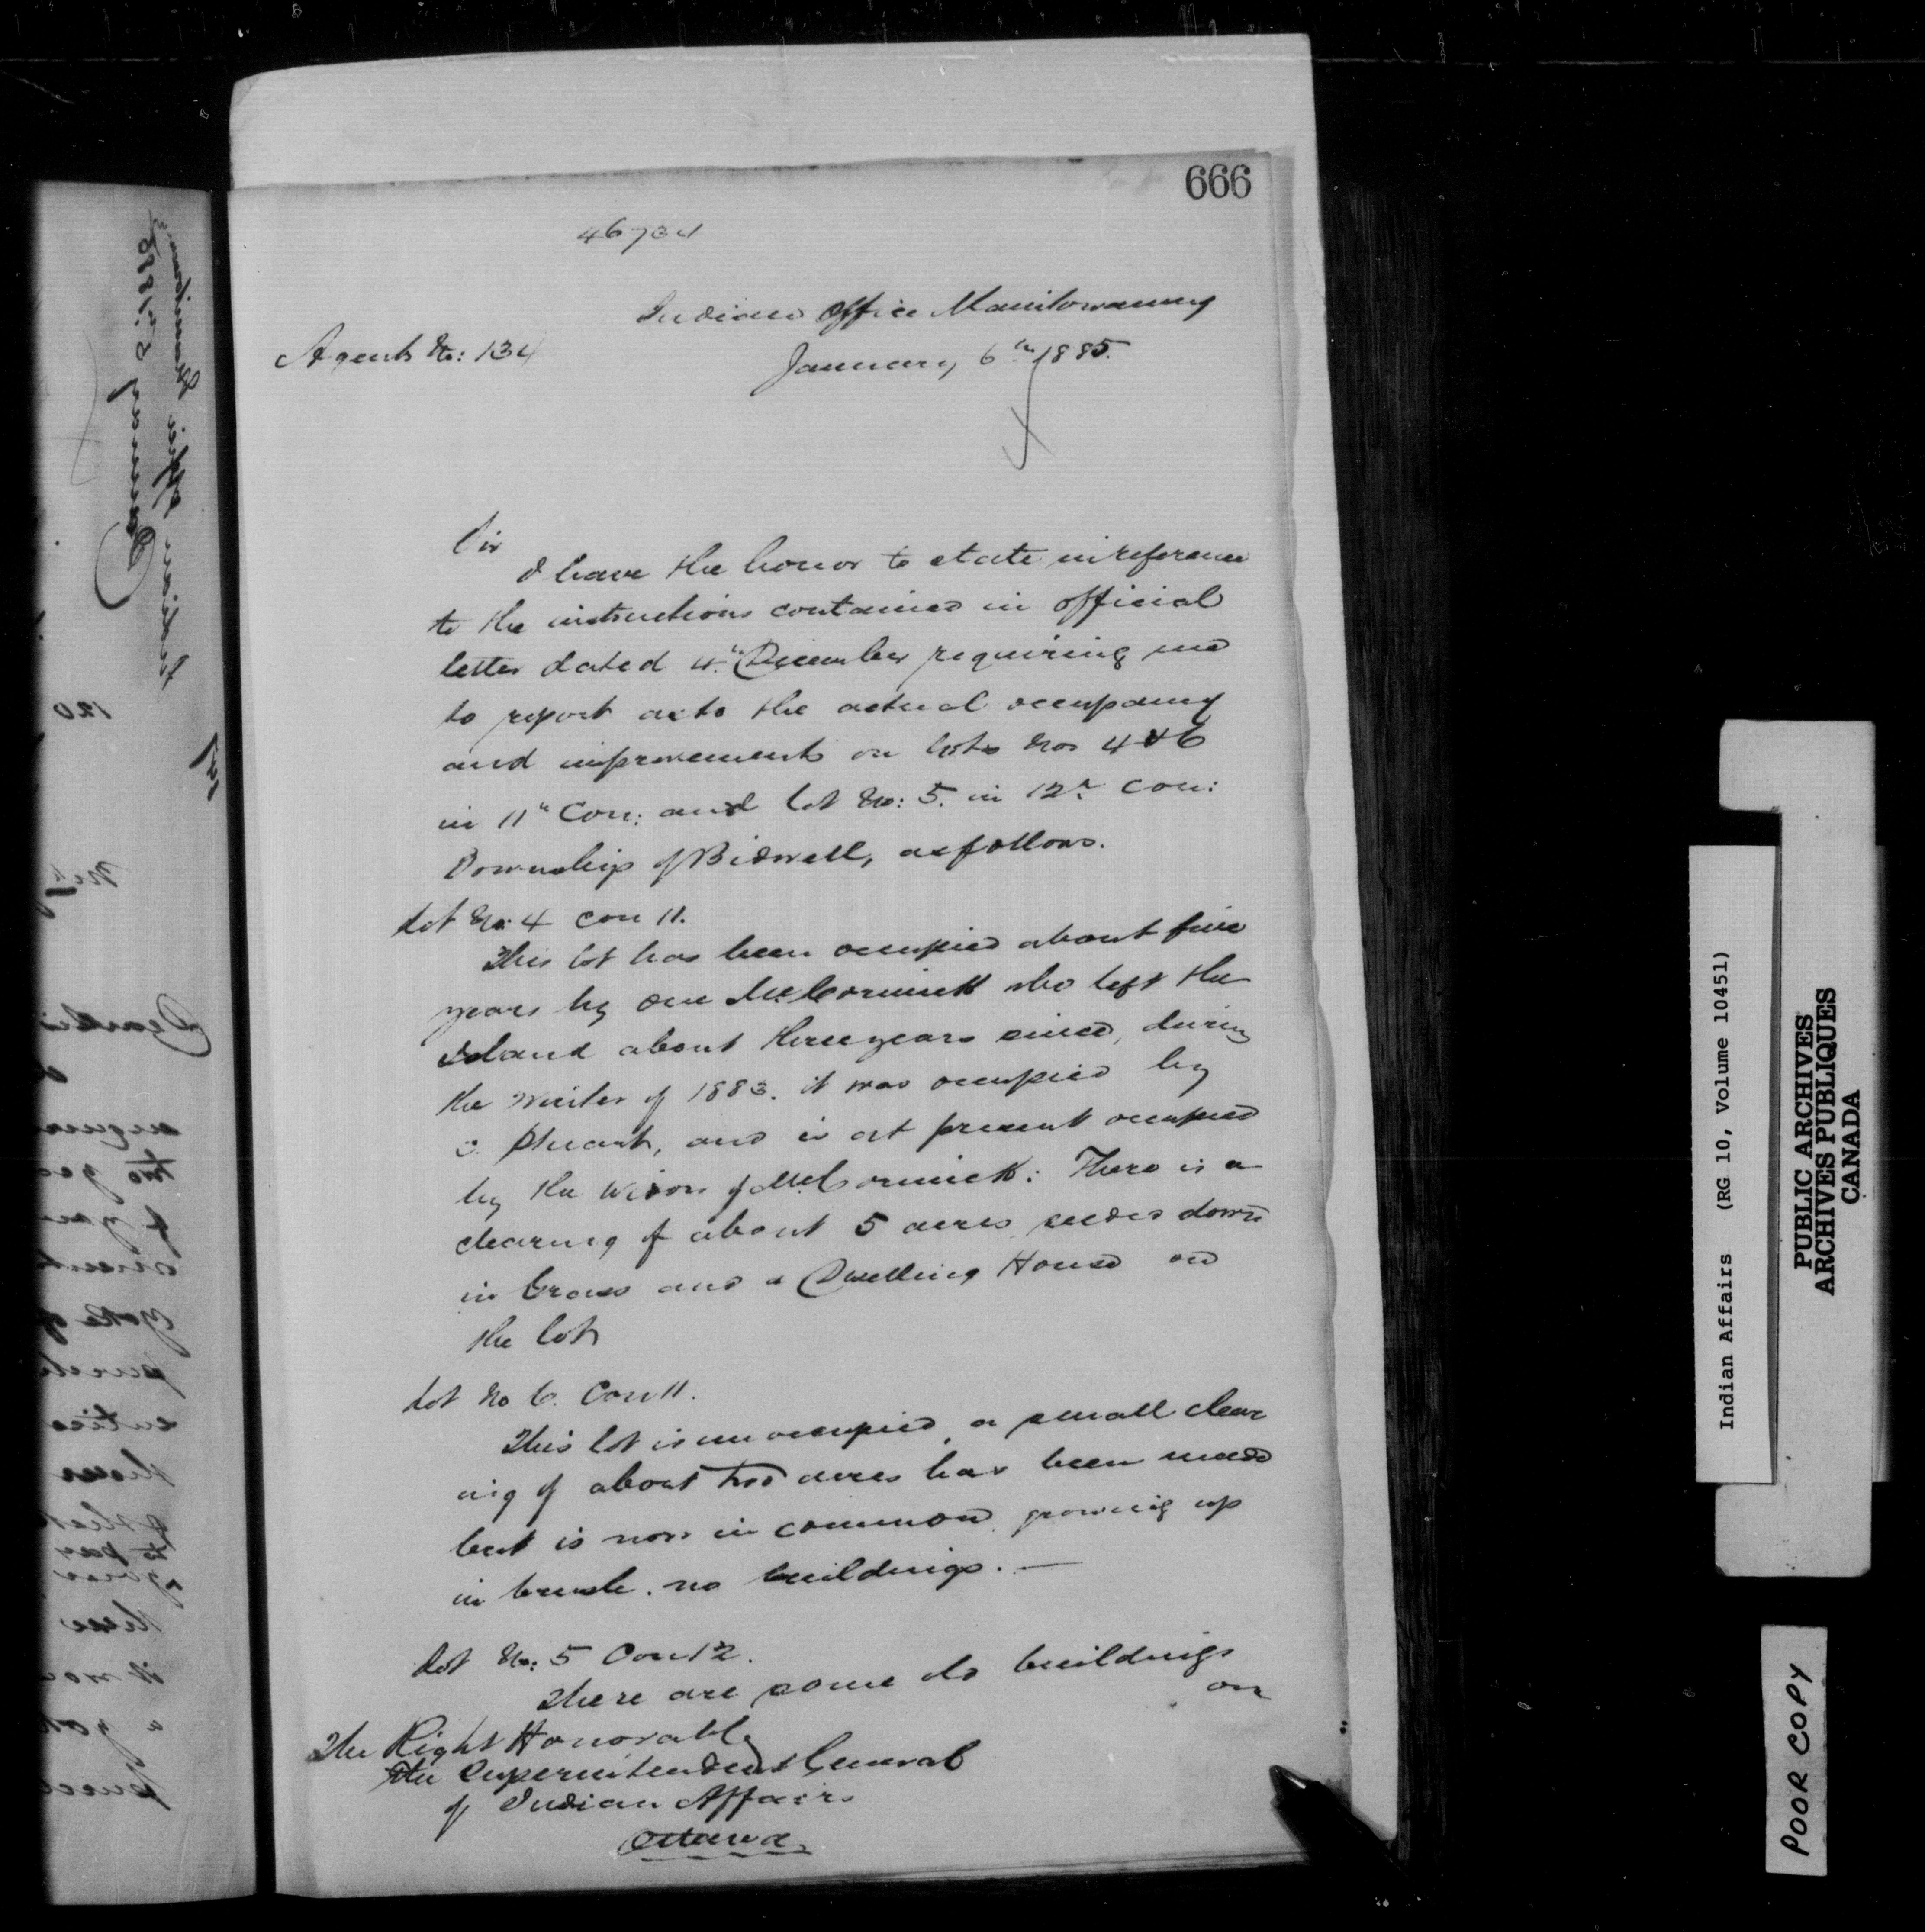 666
46734
Indian Office Manitowaning
Agents No: 134
January 6th 1885.
Sir
I have the honor to state in reference
to the instructions contained in official
letter dated 4th December requiring me
to report as to the actual occupancy
and improvements on lots Nos 4 & 6
in 11th Con: and lot No: 5. in 12th Con:
Township of Bidwell, as follows.
Lot No: 4 Con 11.
This lot has been occupied about five
years by one McCormick who left the
Island about three years since, during
the winter of 1883. it was occupied by
Stuart, and is at present occupied
by the widow of McCormick: There is a
clearing of about 5 acres seeded down
in Grass and a Dwelling House on
the lot
Lot No 6. Con 11.
This lot is unoccupied, a small clear
ing of about two acres has been made
but is now in common growing up
in brush. no buildings. —
Lot No: 5 Con 12.
There are some old buildings
on
The Right Honorable
The Superintendent General
of Indian Affairs
Ottawa
Indian Affairs (RG 10, Volume 10451)
PUBLIC ARCHIVES
ARCHIVES PUBLIQUES
CANADA
POOR COPY